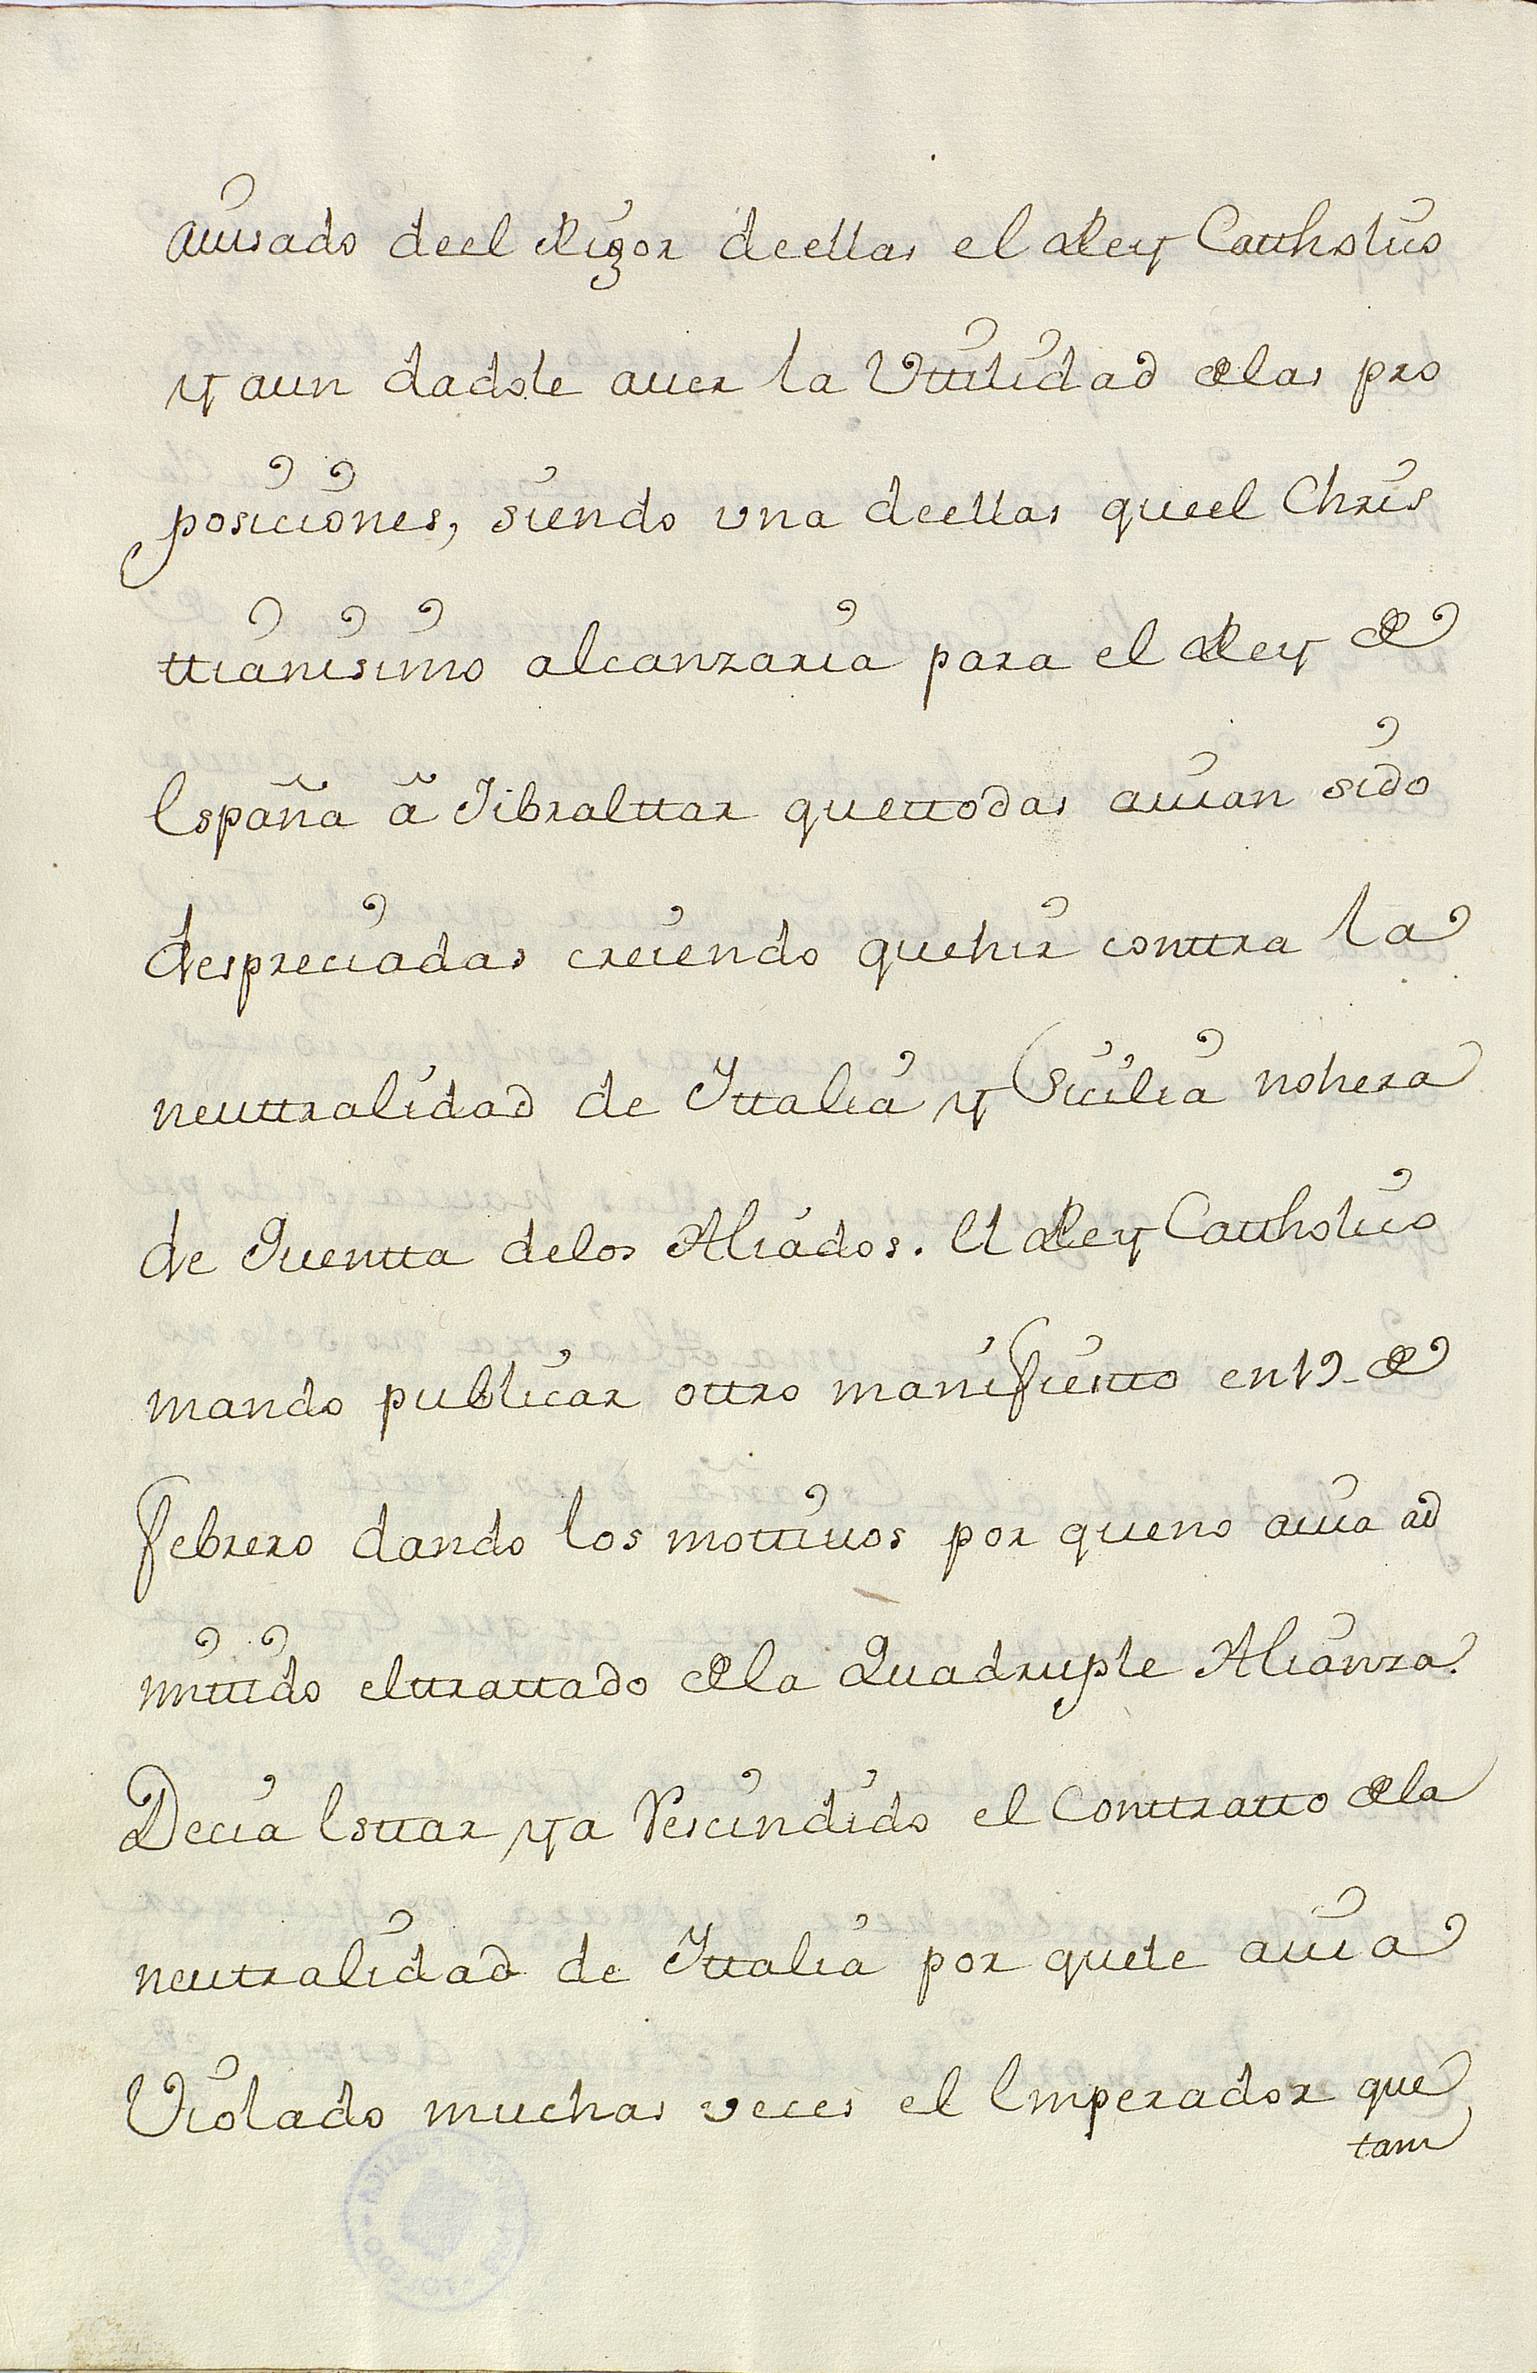 auisado deel Rigor deellas el Rey Cattholico
y aun dadole auer la Vttilidad de las pro
posiciones, siendo vna deellas queel Chris
ttianisimo alcanzaria para el Rey de
España â Jibralttar quettodas auian sido
despreciadas creiendo quehir conttra la
neuttralidad de Ittalia y Sicilia nohera
de Quentta delos Aliados. El Rey Cattholico
mando publicar ottro manifiestto en 19 de
febrero dando los mottiuos por queno auia ad
mittido elttrattado de la Quadruple Alianza.
Decia Esttar ya Rescindido el Conttratto de la
neutralidad de Ittalia por quele auia
Violado muchas veces el Emperador que
tam